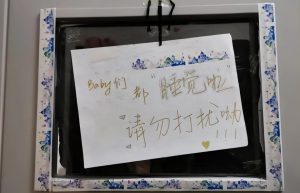 Baby们
都“睡觉啦”
请勿打扰呦
!!!